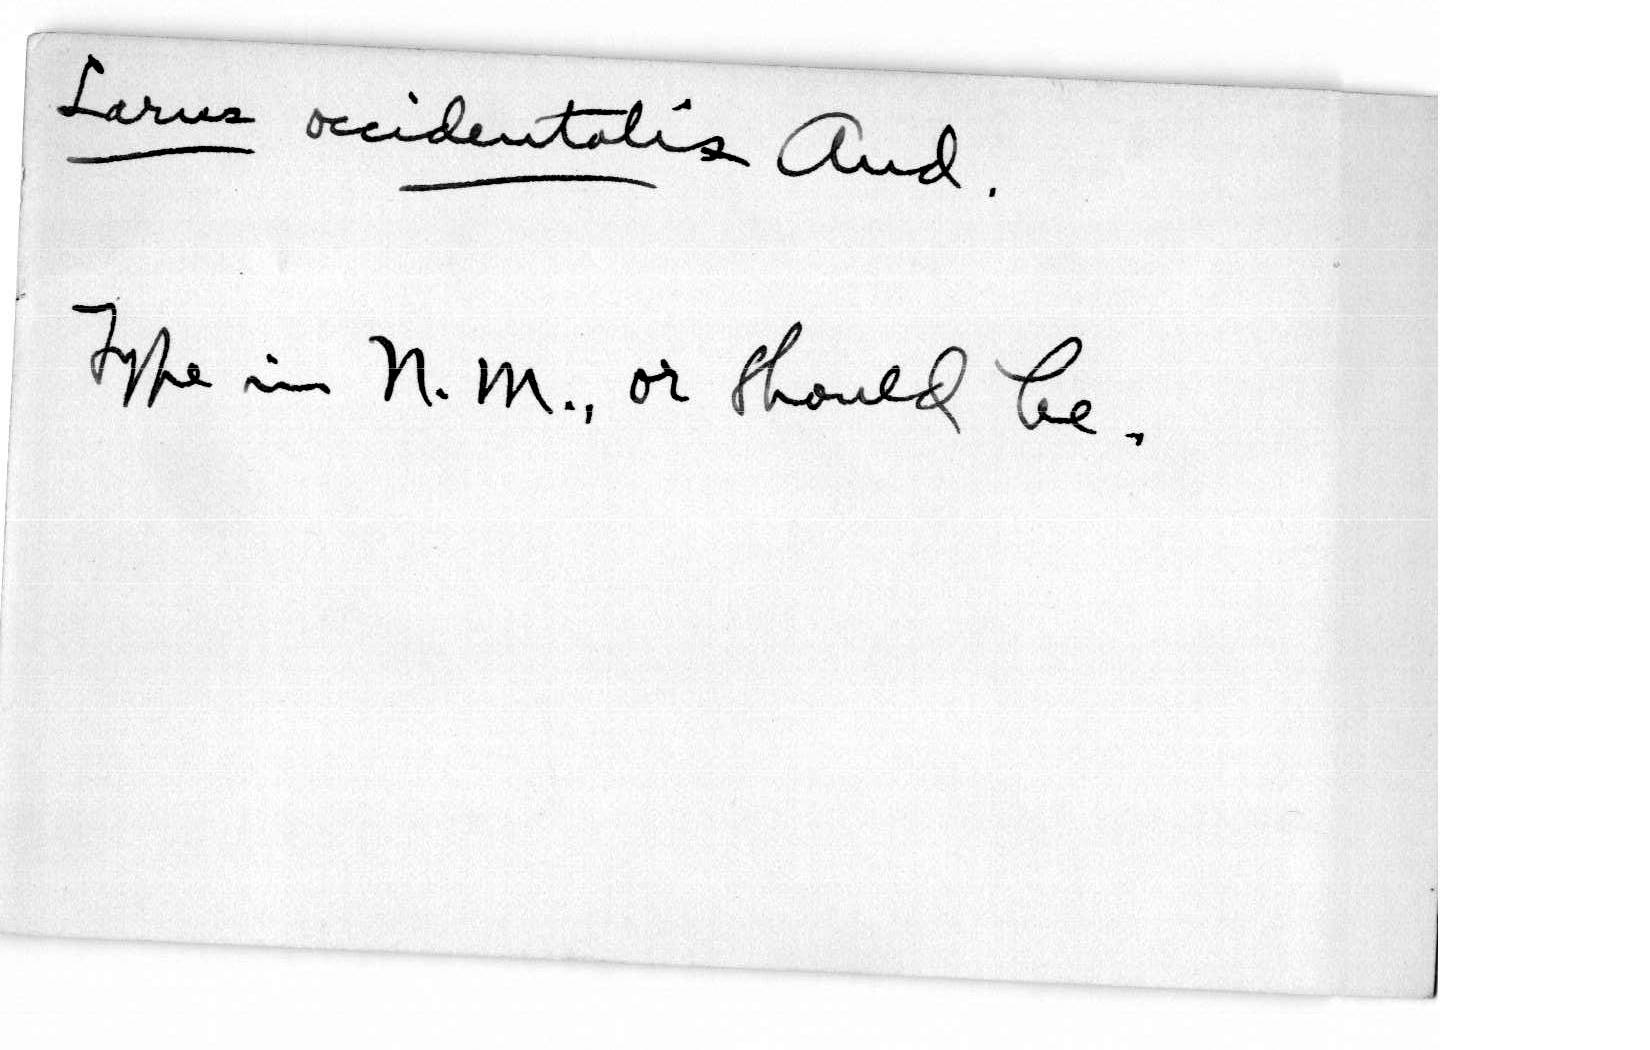 Larus occidentalis Aud.
Type in N. M., or should be.